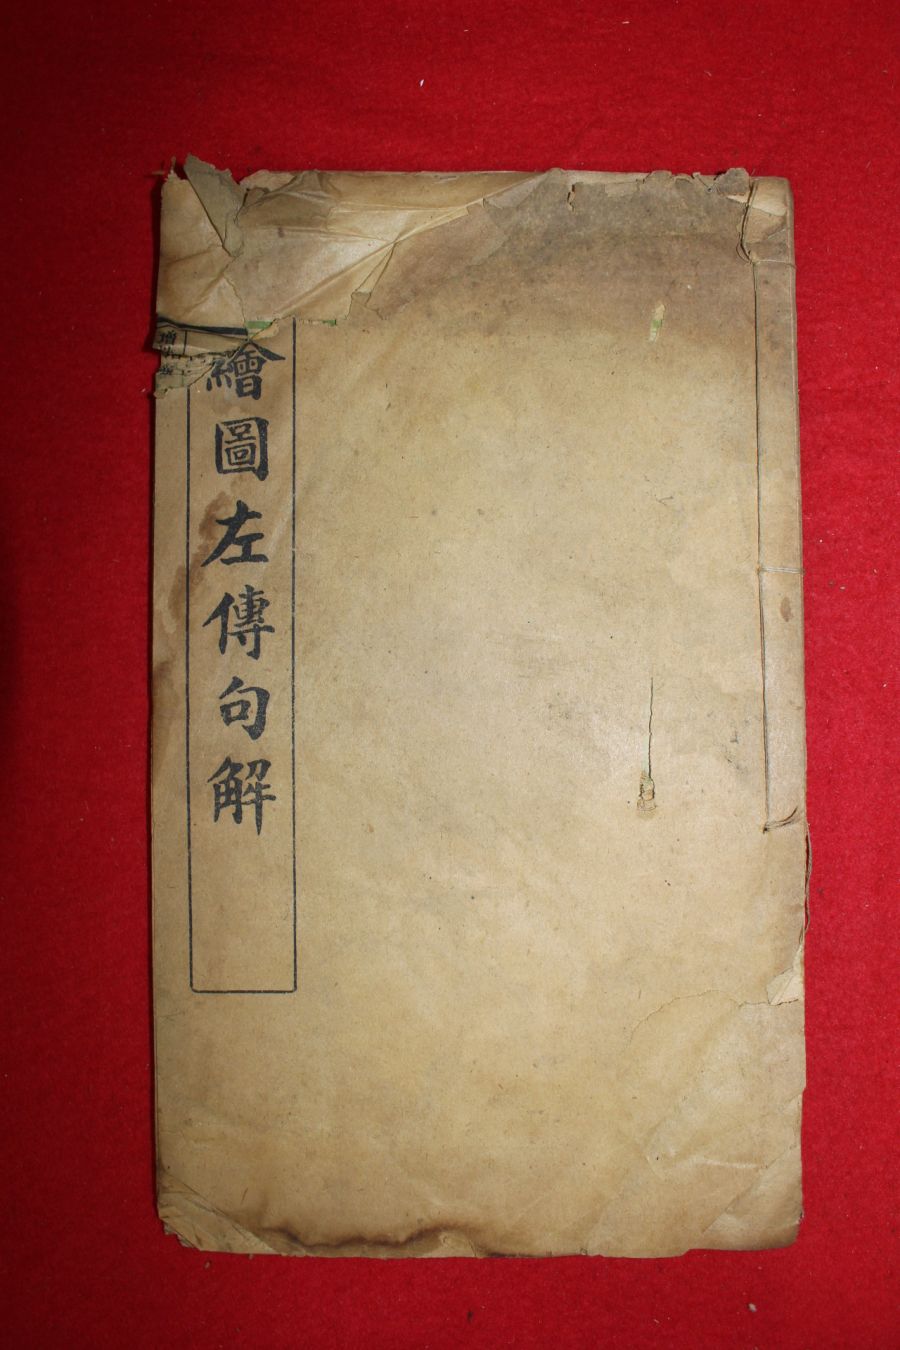 繪圖左傳句解
增